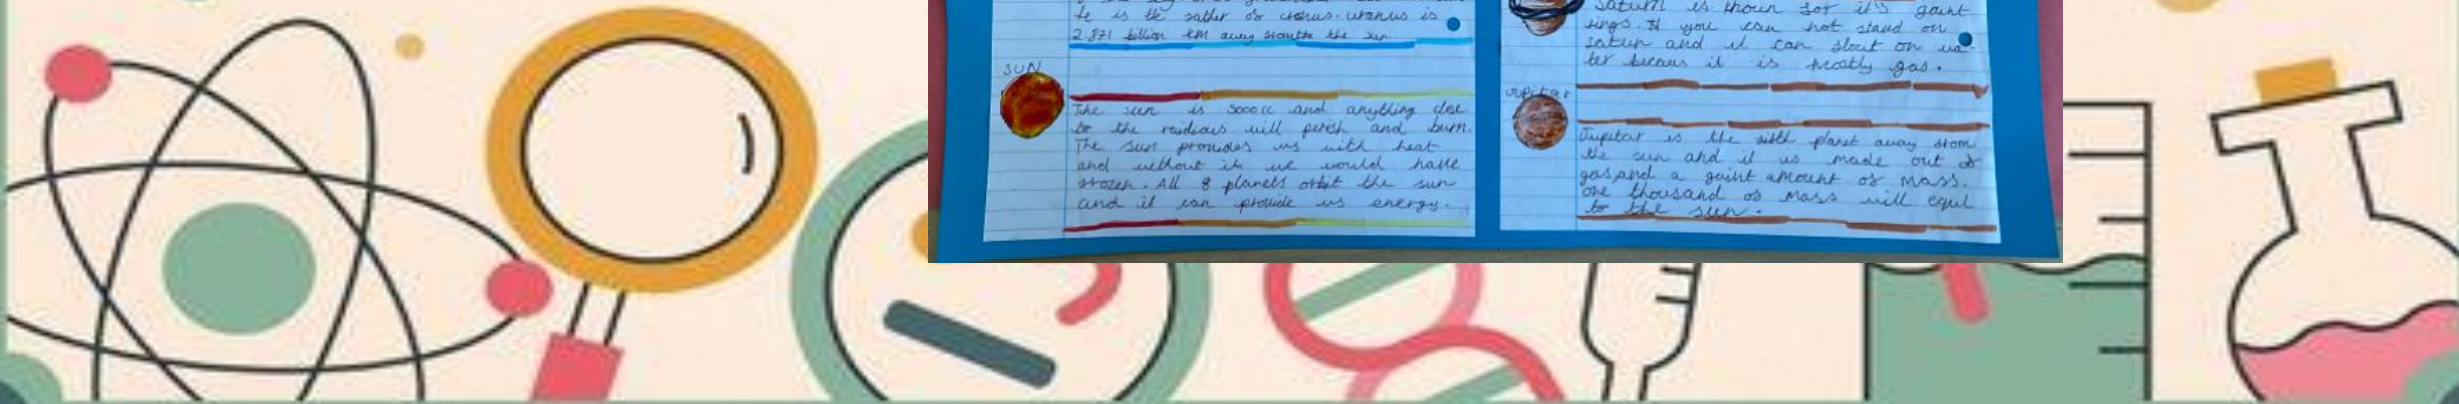 is the father of cronus. uranus is
2.871 billion km away from the the sun.
SUN
The sun is 5000cc and anything close
to the reidious will perish and burn.
The sun provides us with heat
and without it we would have
frozen. All 8 planets orbit the sun
and it can provide us energy.
Saturn is knoun for it's gaint
rings. you can not stand on
saturn and it can flout on wa-
ter becaus it is mostly gas.
Jupitar is the sixth planet away from
the sun and it is made out of
gas, and a gaint amount of mass.
one thousand of mass will equl
to the sun.